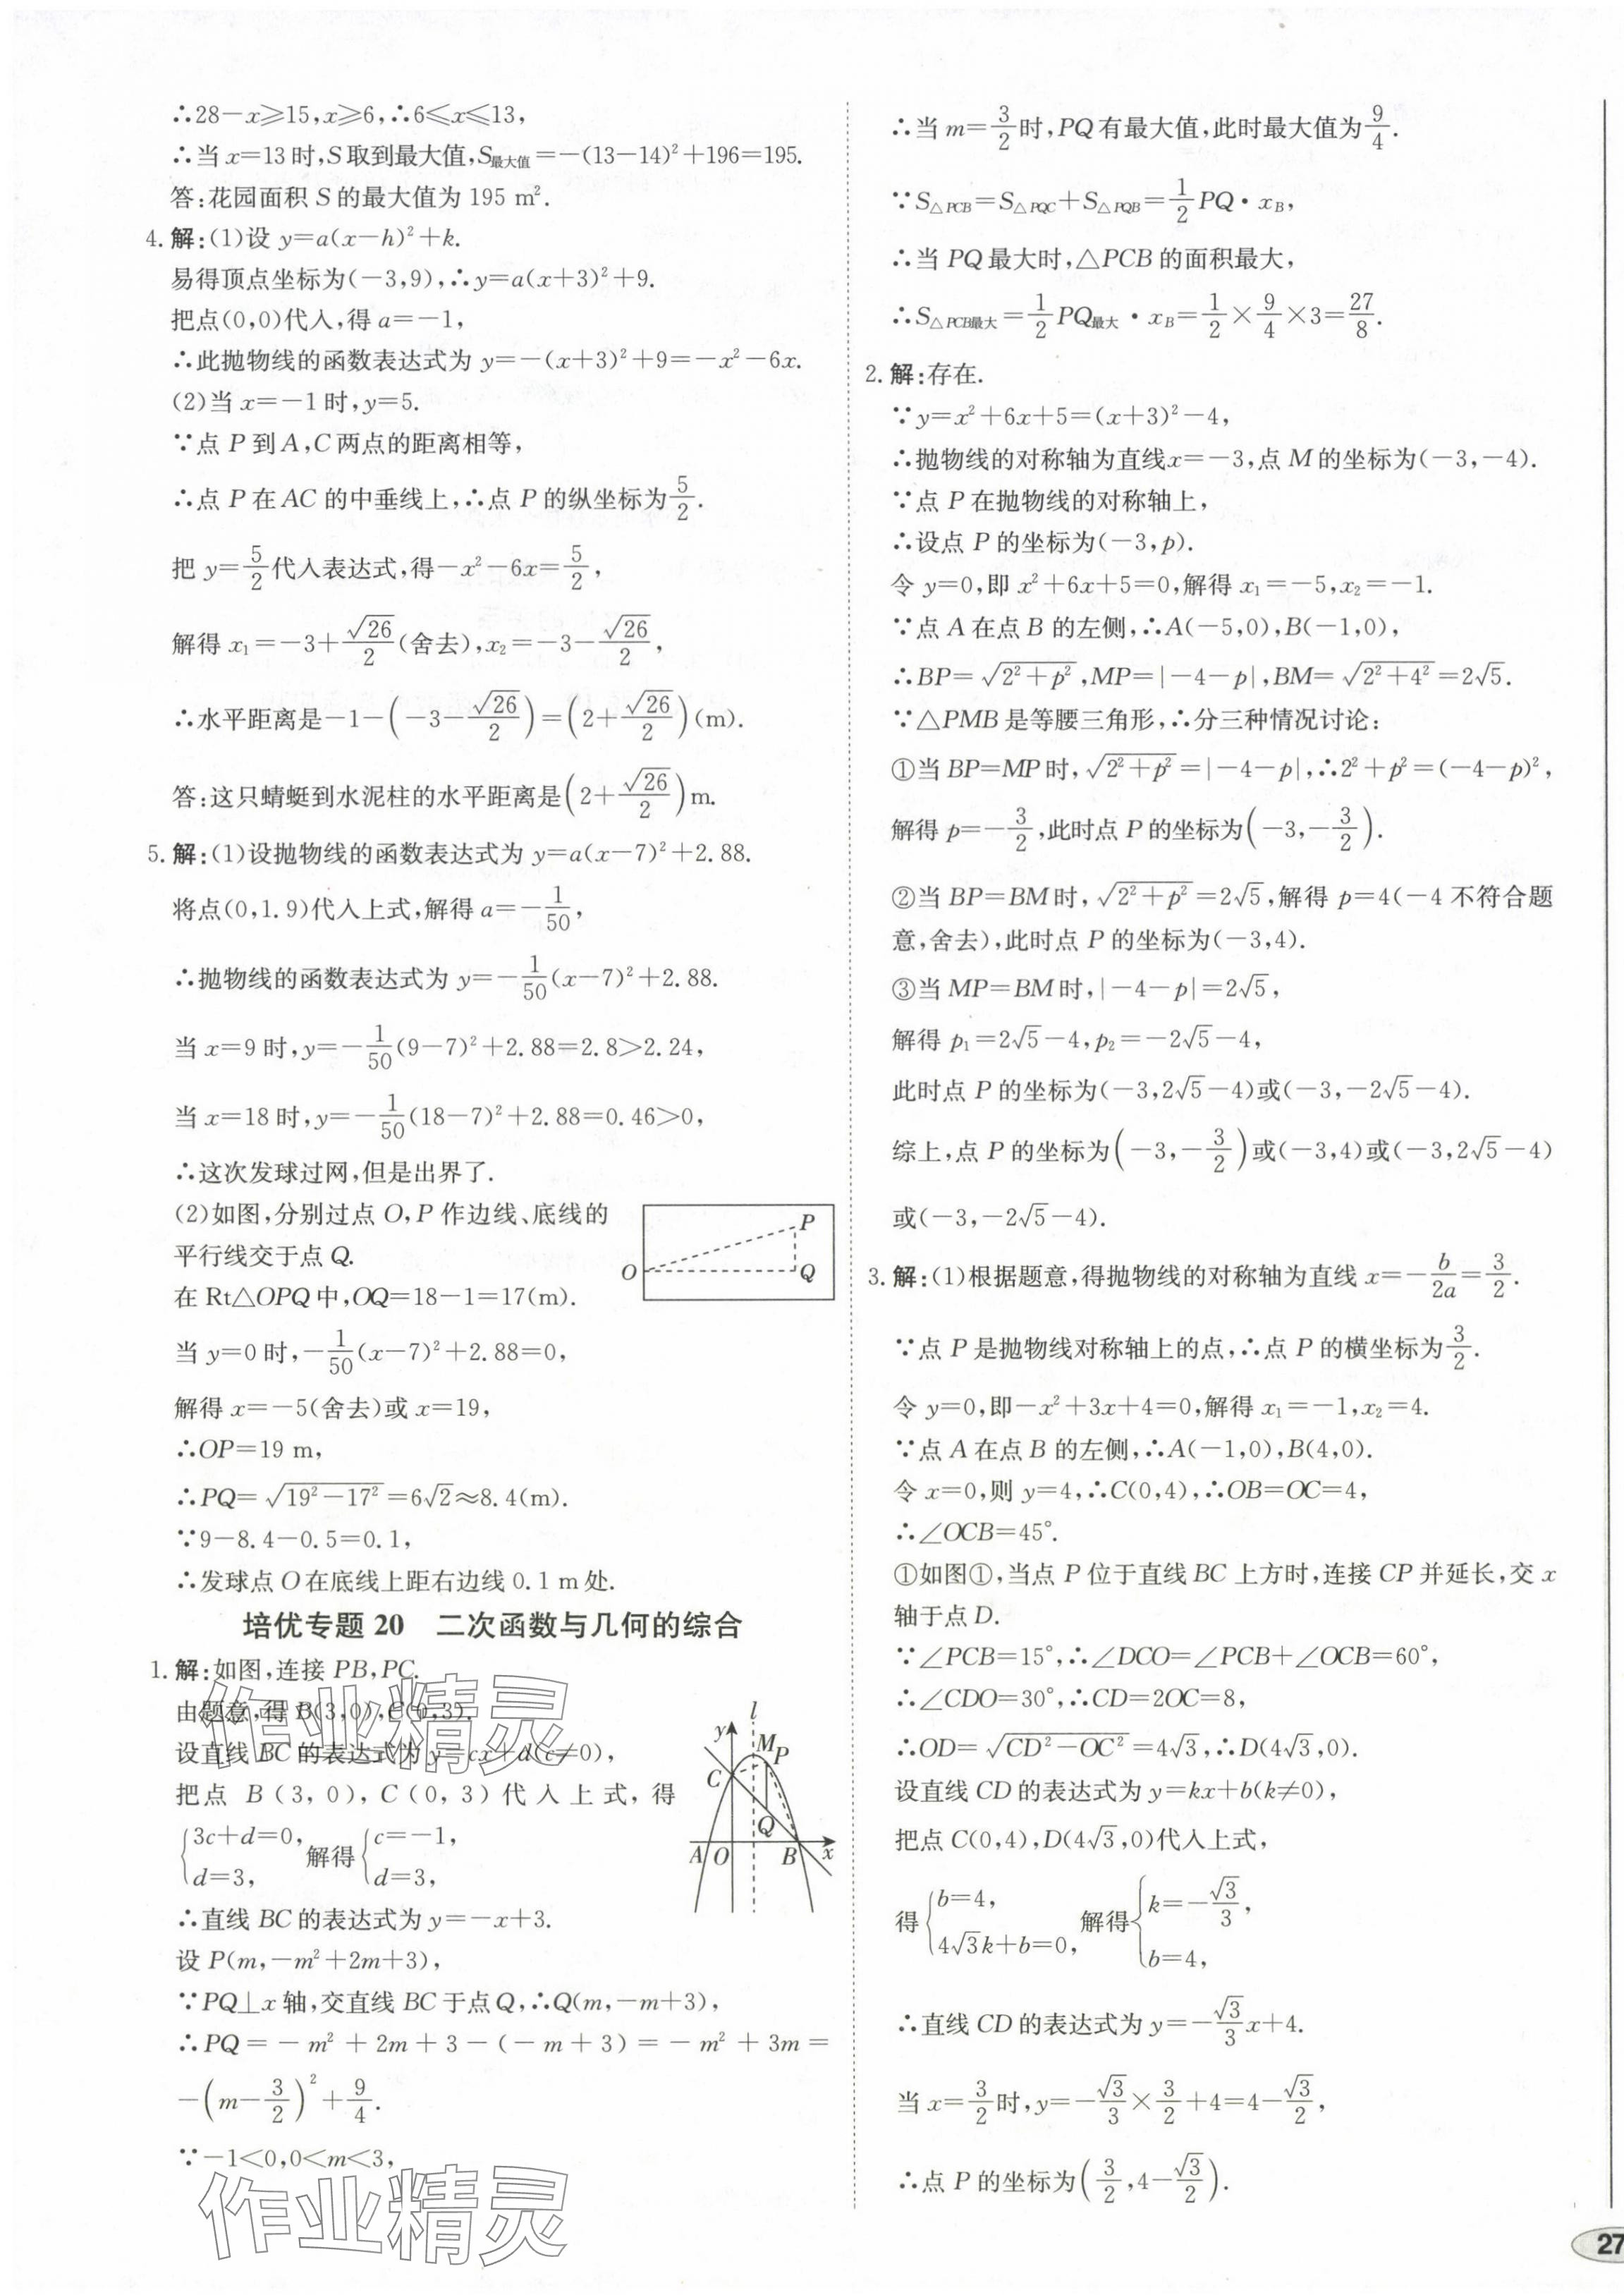 ∴28－x≥15,x≥6,∴6≤x≤13,
∴当 x＝13 时,S取到最大值,S最大值＝－(13－14)²＋196＝195.
答:花园面积 S 的最大值为 195 m².
4. 解:(1)设 y＝a(x－h)²＋k.
易得顶点坐标为(－3,9),∴y＝a(x＋3)²＋9.
把点(0,0)代入,得 a＝－1,
∴此抛物线的函数表达式为 y＝－(x＋3)²＋9＝－x²－6x.
(2)当 x＝－1 时,y＝5.
∵点 P 到 A,C 两点的距离相等,
∴点 P 在 AC 的中垂线上,∴点 P 的纵坐标为5/2.
把 y＝5/2代入表达式,得－x²－6x＝5/2,
解得 x₁＝－3＋√26/2(舍去),x₂＝－3－√26/2,
∴水平距离是－1－(－3－√26/2)＝(2＋√26/2)(m).
答:这只蜻蜓到水泥柱的水平距离是(2＋√26/2)m.
5. 解:(1)设抛物线的函数表达式为 y＝a(x－7)²＋2.88.
将点(0,1.9)代入上式,解得 a＝－1/50,
∴抛物线的函数表达式为 y＝－1/50(x－7)²＋2.88.
当 x＝9 时,y＝－1/50(9－7)²＋2.88＝2.8＞2.24,
当 x＝18 时,y＝－1/50(18－7)²＋2.88＝0.46＞0,
∴这次发球过网,但是出界了.
(2)如图,分别过点 O,P 作边线、底线的
平行线交于点 Q.
在 Rt△OPQ 中,OQ＝18－1＝17(m).
P
O
Q
当 y＝0 时,－1/50(x－7)²＋2.88＝0,
解得 x＝－5(舍去)或 x＝19,
∴OP＝19 m,
∴PQ＝√(19²－17²)＝6√2≈8.4(m).
∵9－8.4－0.5＝0.1,
∴发球点 O 在底线上距右边线 0.1 m 处.
培优专题 20 二次函数与几何的综合
1. 解:如图,连接 PB,PC.
由题意,得 B(3,0),C(0,3).
设直线 BC 的表达式为 y＝cx＋d(c≠0),
把点 B(3,0),C(0,3)代入上式,得
{3c＋d＝0, d＝3, 解得 {c＝－1, d＝3,
l
y
M
P
C
Q
A
O
B
x
∴直线 BC 的表达式为 y＝－x＋3.
设 P(m,－m²＋2m＋3),
∵PQ⊥x 轴,交直线 BC 于点 Q,∴Q(m,－m＋3),
∴PQ＝－m²＋2m＋3－(－m＋3)＝－m²＋3m＝
－(m－3/2)²＋9/4.
∵－1＜0,0＜m＜3,
作业精灵
作业精灵
∴当 m＝3/2时,PQ 有最大值,此时最大值为9/4.
∵S△PCB＝S△PQC＋S△PQB＝1/2PQ·x_B,
∴当 PQ 最大时,△PCB 的面积最大,
∴S△PCB最大＝1/2PQ最大·x_B＝1/2×9/4×3＝27/8.
2. 解:存在.
∵y＝x²＋6x＋5＝(x＋3)²－4,
∴抛物线的对称轴为直线x＝－3,点 M 的坐标为(－3,－4).
∵点 P 在抛物线的对称轴上,
∴设点 P 的坐标为(－3,p).
令 y＝0,即 x²＋6x＋5＝0,解得 x₁＝－5,x₂＝－1.
∵点 A 在点 B 的左侧,∴A(－5,0),B(－1,0),
∴BP＝√(2²＋p²),MP＝|－4－p|,BM＝√(2²＋4²)＝2√5.
∵△PMB 是等腰三角形,∴分三种情况讨论:
①当 BP＝MP 时,√(2²＋p²)＝|－4－p|,∴2²＋p²＝(－4－p)²,
解得 p＝－3/2,此时点 P 的坐标为(－3,－3/2).
②当 BP＝BM 时,√(2²＋p²)＝2√5,解得 p＝4(－4 不符合题
意,舍去),此时点 P 的坐标为(－3,4).
③当 MP＝BM 时,|－4－p|＝2√5,
解得 p₁＝2√5－4,p₂＝－2√5－4,
此时点 P 的坐标为(－3,2√5－4)或(－3,－2√5－4).
综上,点 P 的坐标为(－3,－3/2)或(－3,4)或(－3,2√5－4)
或(－3,－2√5－4).
3. 解:(1)根据题意,得抛物线的对称轴为直线 x＝－b/2a＝3/2.
∵点 P 是抛物线对称轴上的点,∴点 P 的横坐标为3/2.
令 y＝0,即－x²＋3x＋4＝0,解得 x₁＝－1,x₂＝4.
∵点 A 在点 B 的左侧,∴A(－1,0),B(4,0).
令 x＝0,则 y＝4,∴C(0,4),∴OB＝OC＝4,
∴∠OCB＝45°.
①如图①,当点 P 位于直线 BC 上方时,连接 CP 并延长,交 x
轴于点 D.
∵∠PCB＝15°,∴∠DCO＝∠PCB＋∠OCB＝60°,
∴∠CDO＝30°,∴CD＝2OC＝8,
∴OD＝√(CD²－OC²)＝4√3,∴D(4√3,0).
设直线 CD 的表达式为 y＝kx＋b(k≠0),
把点 C(0,4),D(4√3,0)代入上式,
得{b＝4, 4√3k＋b＝0, 解得{k＝－√3/3, b＝4,
∴直线 CD 的表达式为 y＝－√3/3x＋4.
当 x＝3/2时,y＝－√3/3×3/2＋4＝4－√3/2,
∴点 P 的坐标为(3/2,4－√3/2).
27